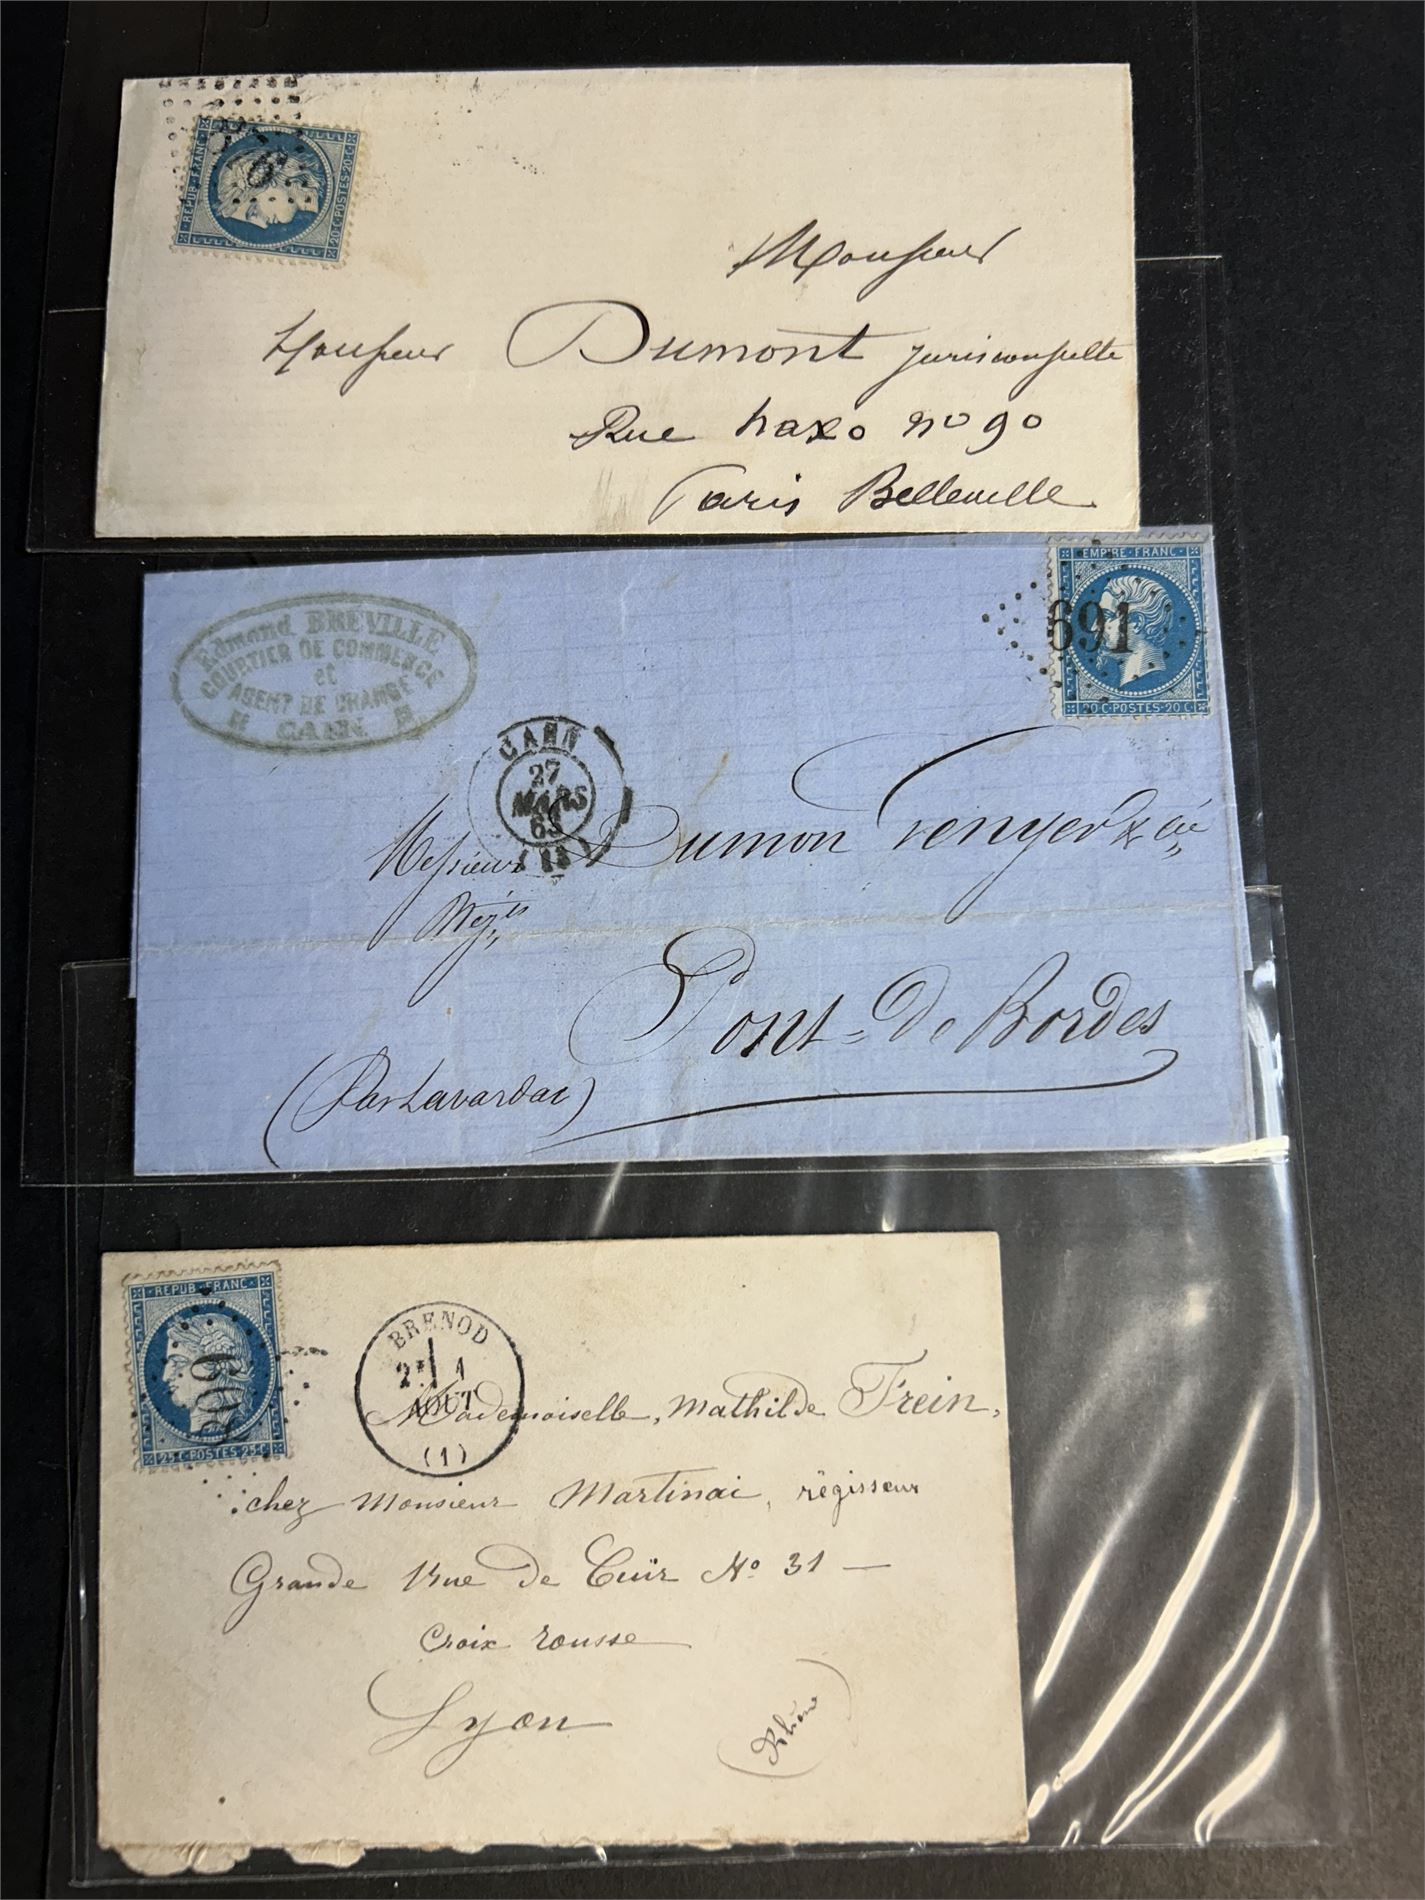 REPUB · FRANC
20·C·POSTES·20·C
Monsieur
Monsieur Dumont jurisconsulte
Rue haxo nº 90
Paris Belleville
EMPIRE · FRANC
691
20·C·POSTES·20·C
Edmond BREVILLE
COURTIER DE COMMERCE
et
AGENT DE CHANGE
CAEN
CAEN
27
MARS
Messieurs Dumon
& Cie
Négts
Pont-De Bordes
(Par Lavardac)
REPUB · FRANC
25·C·POSTES·25·C
BRENOD
2E 1
AOUT
(1)
Mademoiselle, Mathilde Frein,
chez Monsieur Martinai, régisseur
Grande Rue de Cuir Nº 31 —
Croix rousse
Lyon
(Rhône)